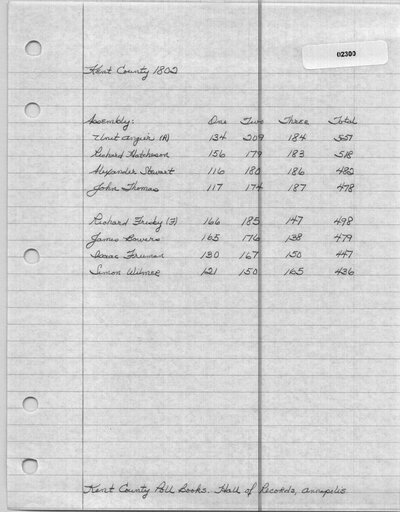 02300
Kent County 1802
Assembly: One Two Three Total
Unit Angier (R) 134 209 184 527
Richard Hatcheson 156 179 183 518
Alexander Stewart 116 180 186 482
John Thomas 117 174 187 478
Richard Frisby (F) 166 185 147 498
James Bowers 165 176 138 479
Isaac Freeman 130 167 150 447
Simon Wilmer 121 150 165 436
Kent County Poll Books. Hall of Records, Annapolis